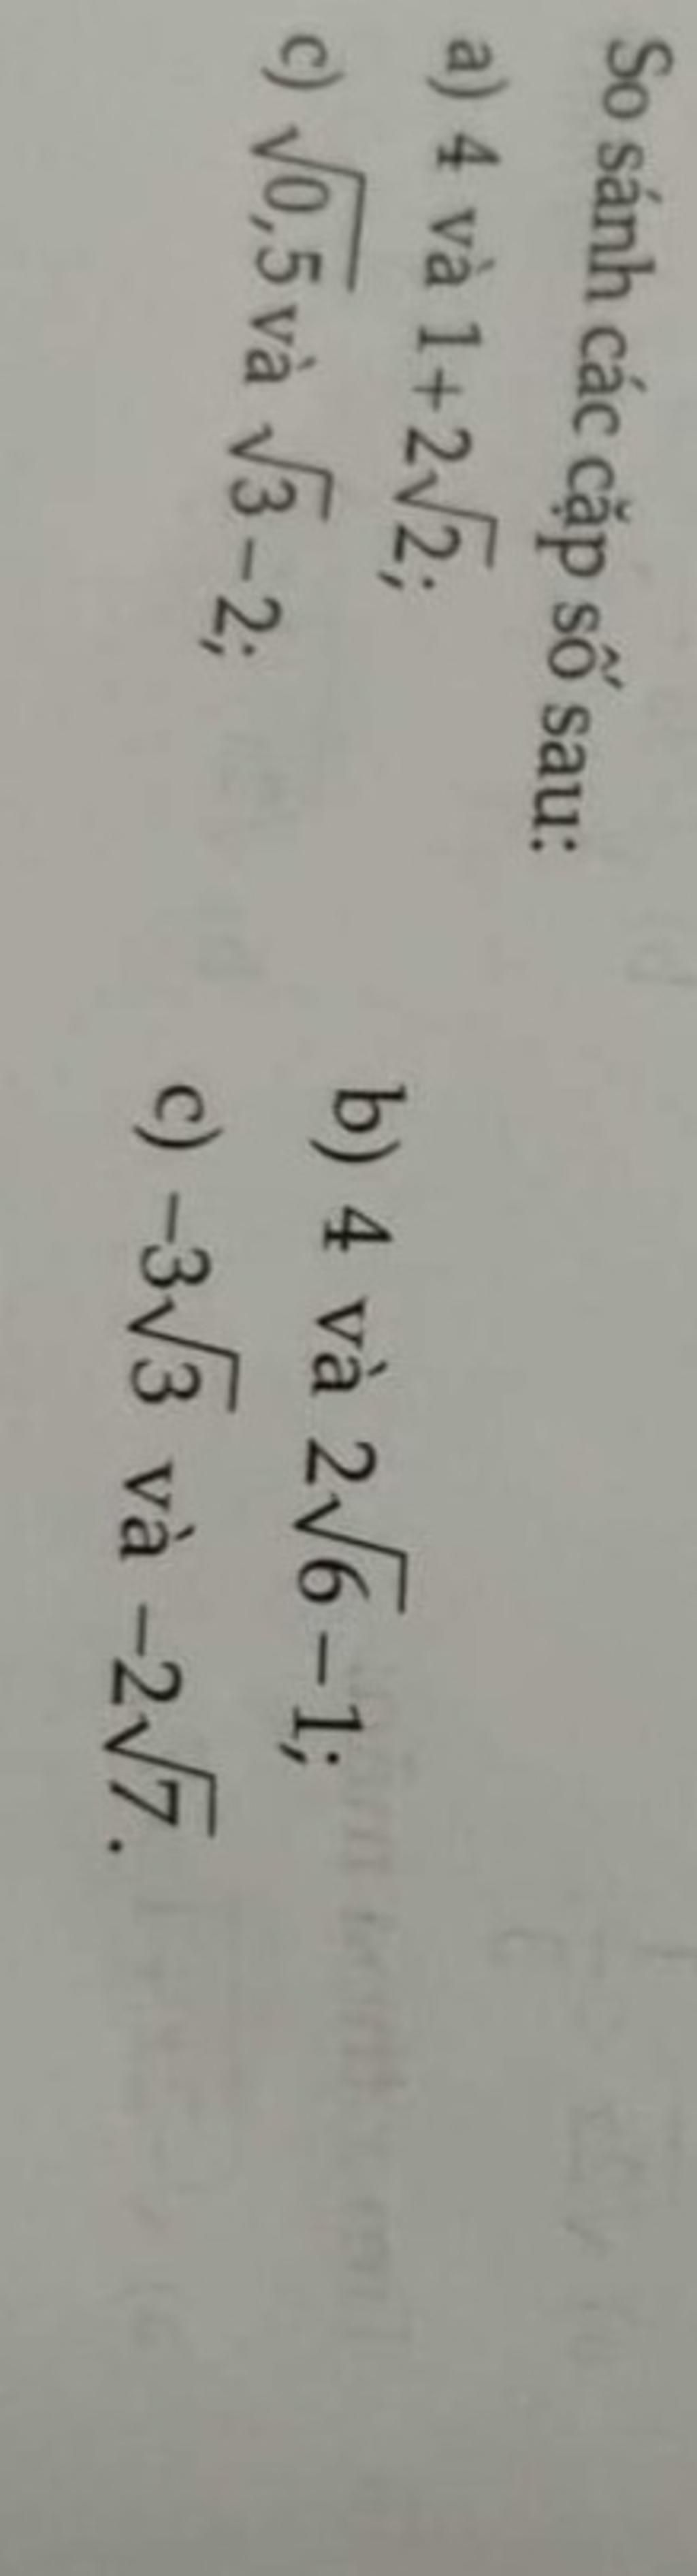 So sánh các cặp số sau:
a) 4 và 1+2√2; b) 4 và 2√6 −1;
c) √0,5 và √3 −2; c) −3√3 và −2√7.